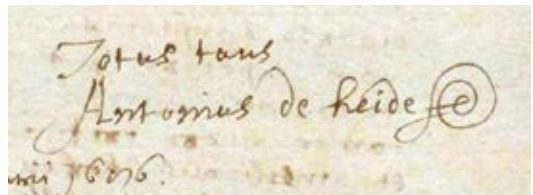 Totus tuus
Antonius de heide
1676.